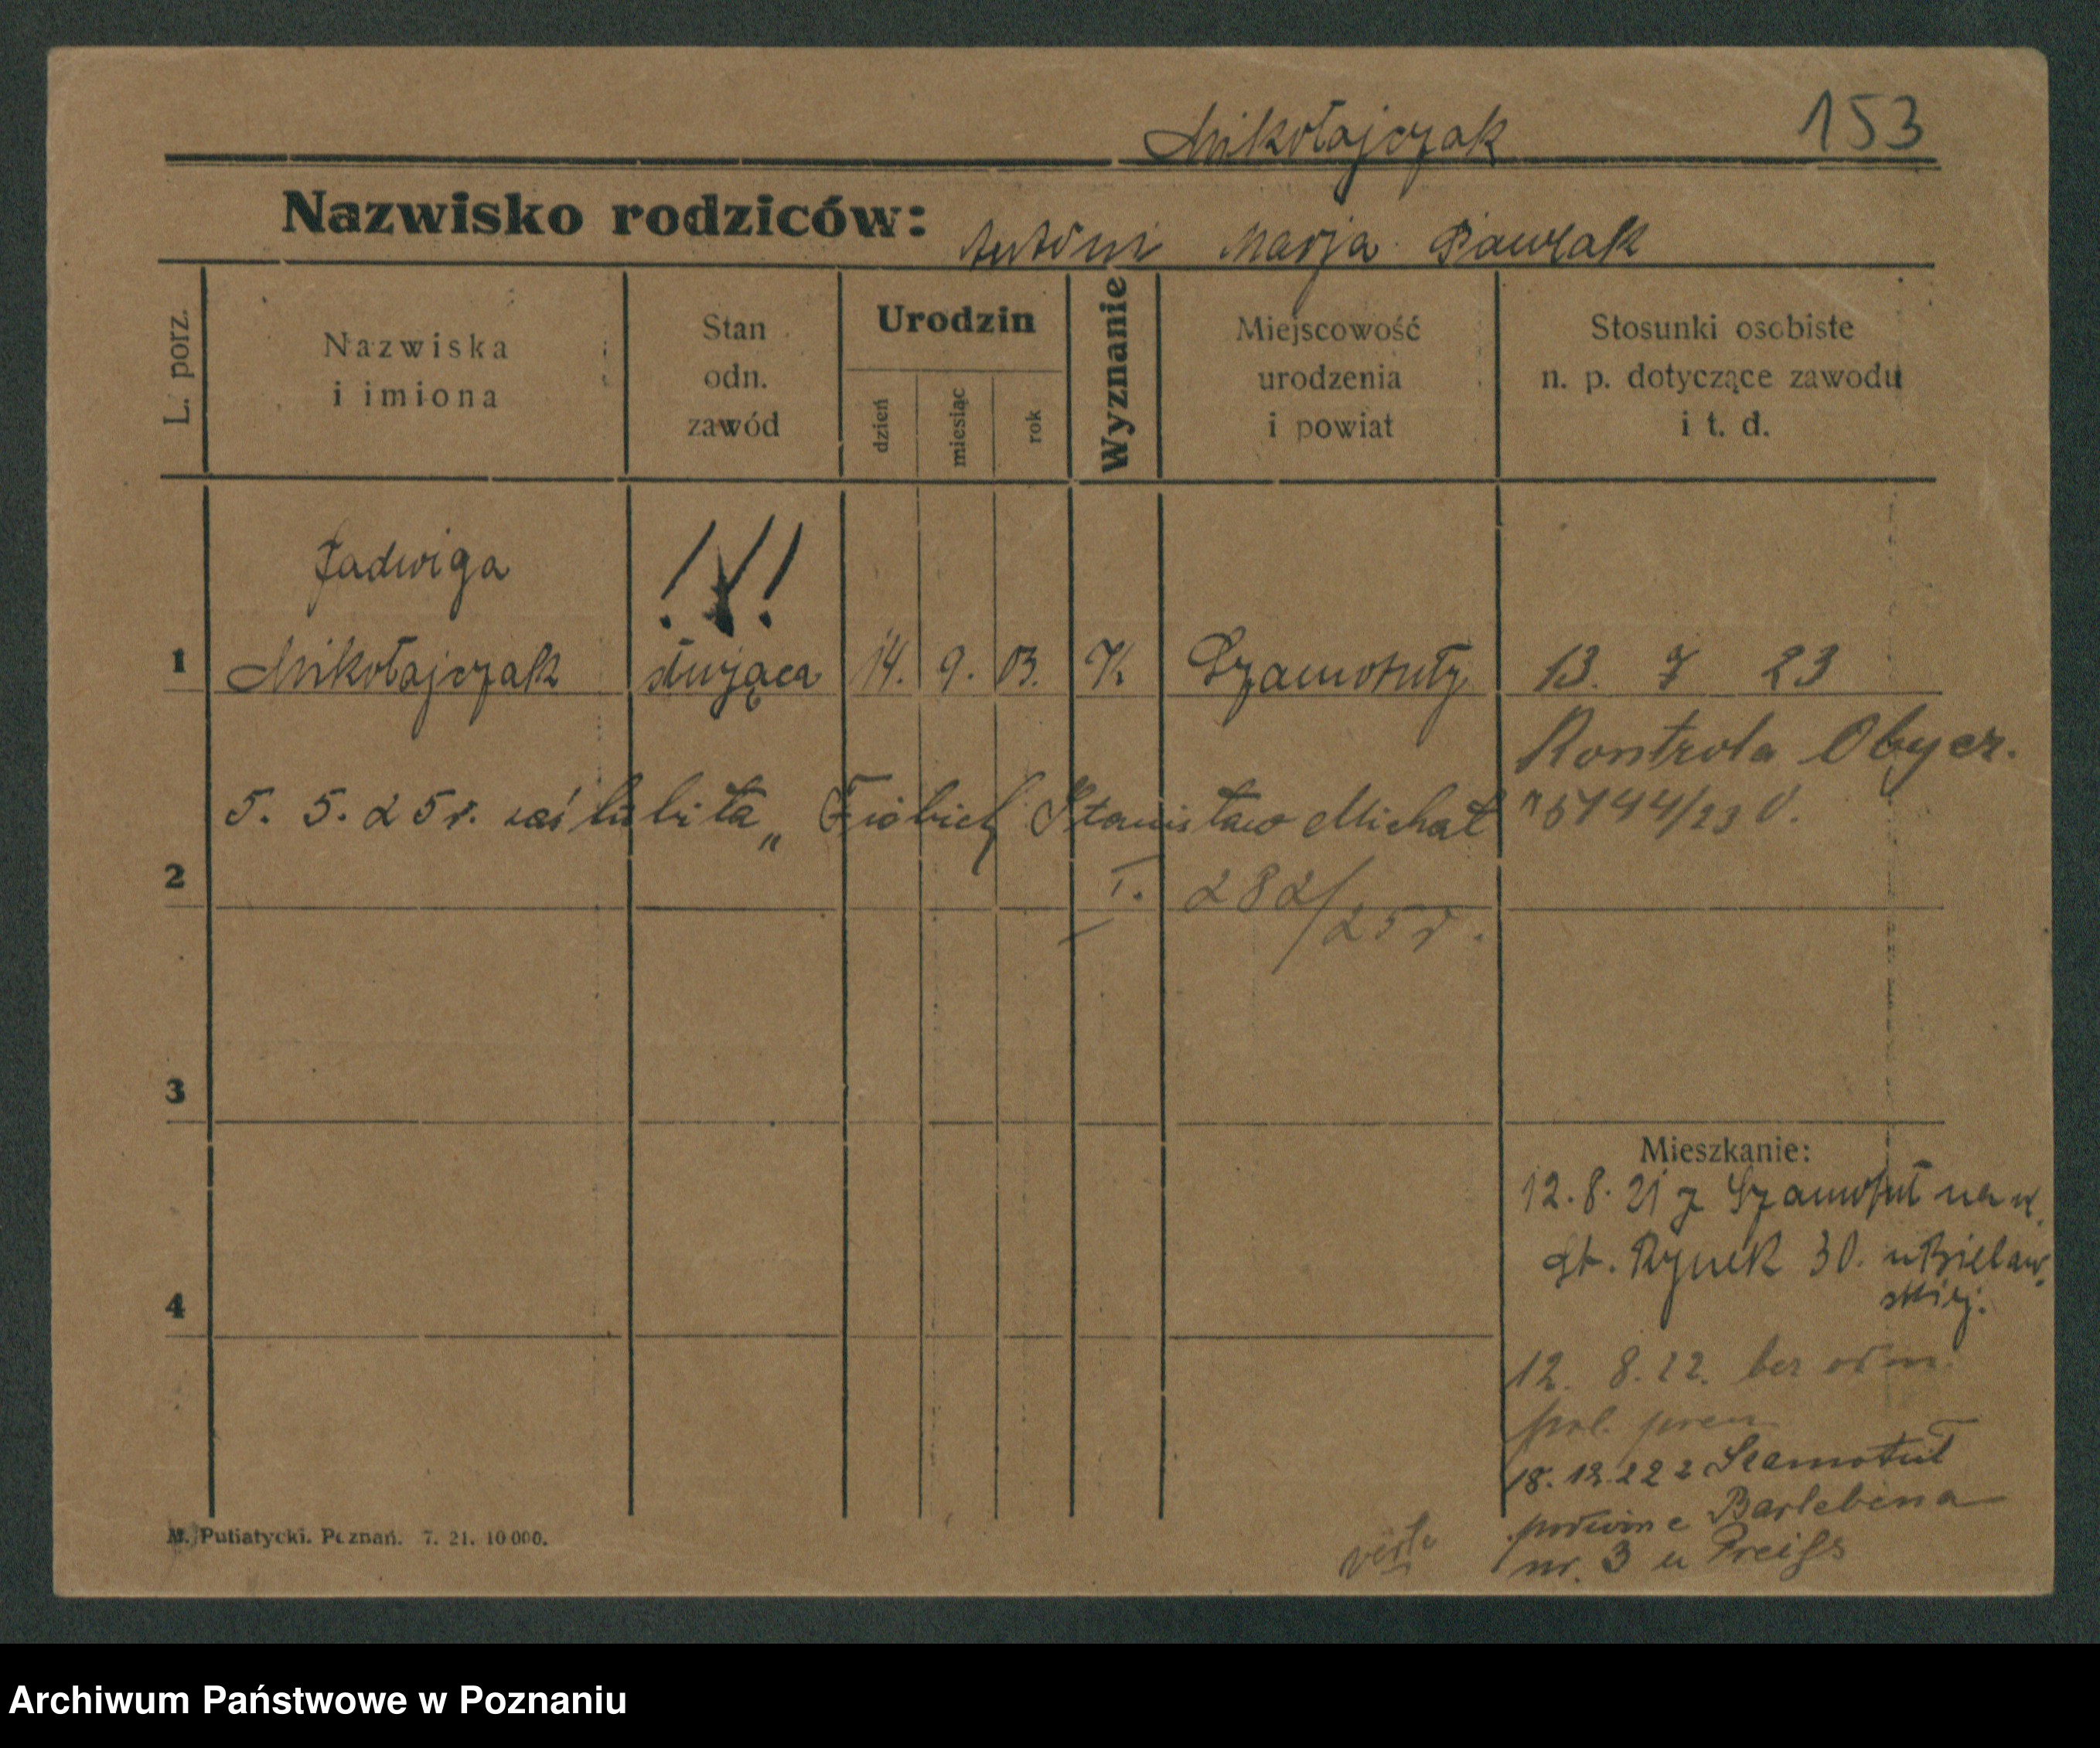 Mikołajczak 153
Nazwisko rodziców: Antoni Marja Pawlak
L. porz.
Nazwiska
i imiona
Stan
odn.
zawód
Urodzin
dzień
miesiąc
rok
Wyznanie
Miejscowość
urodzenia
i powiat
Stosunki osobiste
n. p. dotyczące zawodu
i t. d.
Jadwiga !!!
1 Mikołajczak służąca 14. 9. 03. K. Szamotuły 13. 7 23
Kontrola Obycz.
5. 5. 25 r. zaślubiła „ Fiebich Stanisław Michał
2 I. 282/25 r.
3
Mieszkanie:
12. 8. 21 z Szamotuł
St. Rynek 30. u Bielaw-
skiej.
4
12. 8. 22. bez
18. 12. 22 z Szamotuł
Bartebena
nr. 3 u Preiss
verte
M. Putiatycki. Poznań. 7. 21. 10 000.
Archiwum Państwowe w Poznaniu